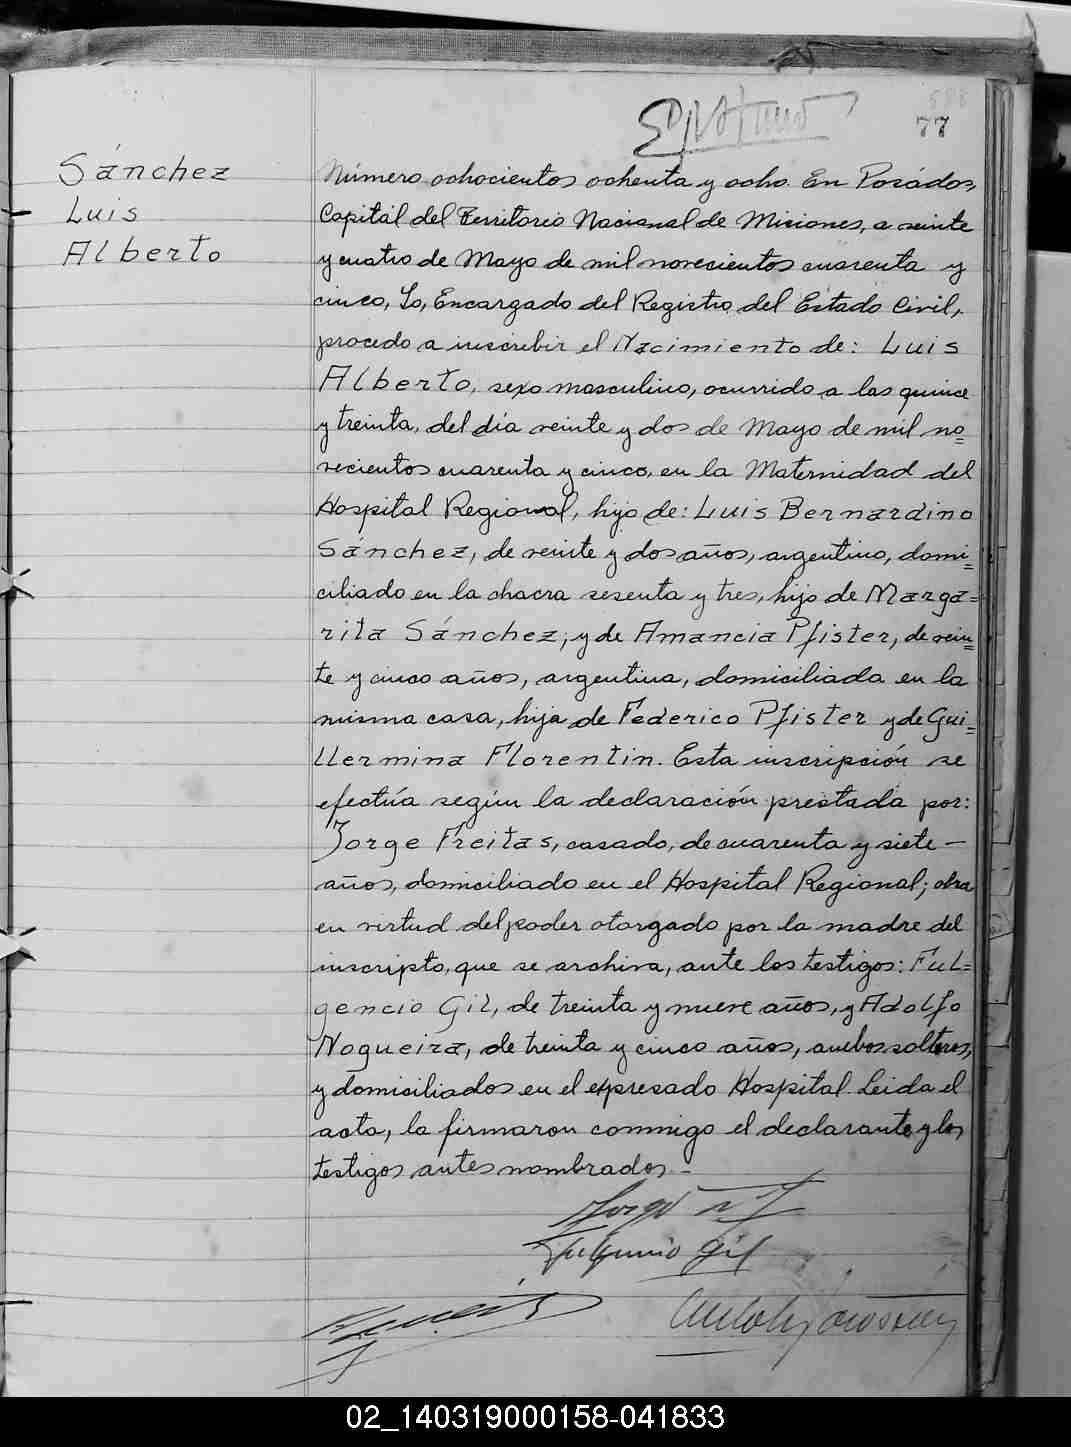 588
77
Sánchez
Luis
Alberto
Número ochocientos ochenta y ocho. En Posadas,
Capital del Territorio Nacional de Misiones, a veinte
y cuatro de Mayo de mil novecientos cuarenta y
cinco, Yo, Encargado del Registro del Estado Civil,
procedo a inscribir el Nacimiento de: Luis
Alberto, sexo masculino, ocurrido a las quince
y treinta, del día veinte y dos de Mayo de mil no=
vecientos cuarenta y cinco, en la Maternidad del
Hospital Regional, hijo de: Luis Bernardino
Sánchez, de veinte y dos años, argentino, domi=
ciliado en la chacra sesenta y tres, hijo de Marga=
rita Sánchez, y de Amancia Pfister, de vein=
te y cinco años, argentina, domiciliada en la
misma casa, hija de Federico Pfister y de Gui=
llermina Florentin. Esta inscripción se
efectúa según la declaración prestada por:
Jorge Freitas, casado, de cuarenta y siete —
años, domiciliado en el Hospital Regional; obra
en virtud del poder otorgado por la madre del
inscripto, que se archiva, ante los testigos: Ful=
gencio Gil, de treinta y nueve años, y Adolfo
Nogueira, de treinta y cinco años, ambos solteros,
y domiciliados en el expresado Hospital. Leida el
acta, la firmaron conmigo el declarante y los
testigos antes nombrados.-
Jorge
Fulgencio Gil
02_140319000158-041833